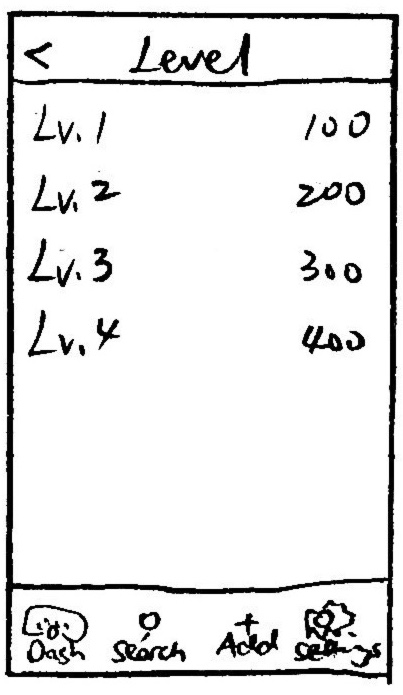 < Level
Lv. 1 100
Lv. 2 200
Lv. 3 300
Lv. 4 400
Dash Search Add Settings